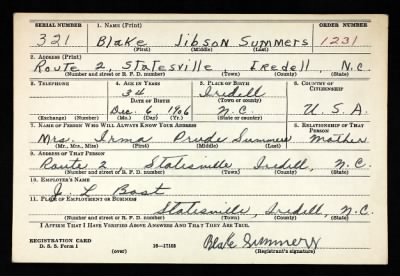 SERIAL NUMBER 1. NAME (Print) ORDER NUMBER
321 Blake Jibson Summers 1231
(First) (Middle) (Last)
2. ADDRESS (Print)
Route 2, Statesville Iredell, N.C.
(Number and street or R. F. D. number) (Town) (County) (State)
3. TELEPHONE 4. AGE IN YEARS 5. PLACE OF BIRTH 6. COUNTRY OF CITIZENSHIP
34 Iredell
DATE OF BIRTH (Town or county)
Dec. 6 1906 N.C. U.S.A.
(Exchange) (Number) (Mo.) (Day) (Yr.) (State or country)
7. NAME OF PERSON WHO WILL ALWAYS KNOW YOUR ADDRESS 8. RELATIONSHIP OF THAT PERSON
Mrs. Irma Summers Mother
(Mr., Mrs., Miss) (First) (Middle) (Last)
9. ADDRESS OF THAT PERSON
Route 2 Statesville Iredell, N.C.
(Number and street or R. F. D. number) (Town) (County) (State)
10. EMPLOYER'S NAME
J. L. Bost
11. PLACE OF EMPLOYMENT OR BUSINESS
Statesville, Iredell, N.C.
(Number and street or R. F. D. number) (Town) (County) (State)
I AFFIRM THAT I HAVE VERIFIED ABOVE ANSWERS AND THAT THEY ARE TRUE.
REGISTRATION CARD
D. S. S. Form 1 (over) 16—17105 Blake Summers
(Registrant's signature)